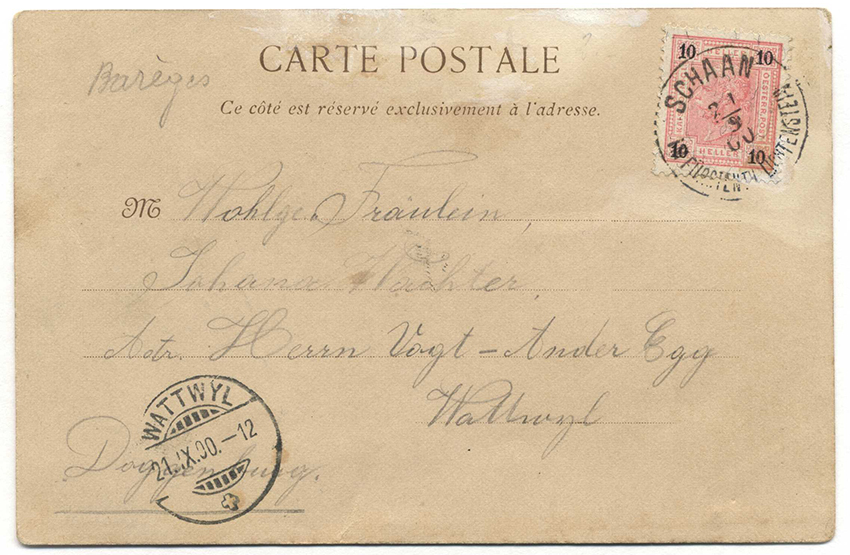 CARTE POSTALE
Barèges
Ce côté est réservé exclusivement à l'adresse.
10 HELLER 10
OESTERR. POST
10 HELLER 10
SCHAAN
FÜRSTENTH. LICHTENSTEIN
M Wohlge. Fräulein,
Johana Wachter,
Adr. Herrn Vogt - Ander Egg
Wattwyl
WATTWYL
21.IX.00.-12
Doggenburg.